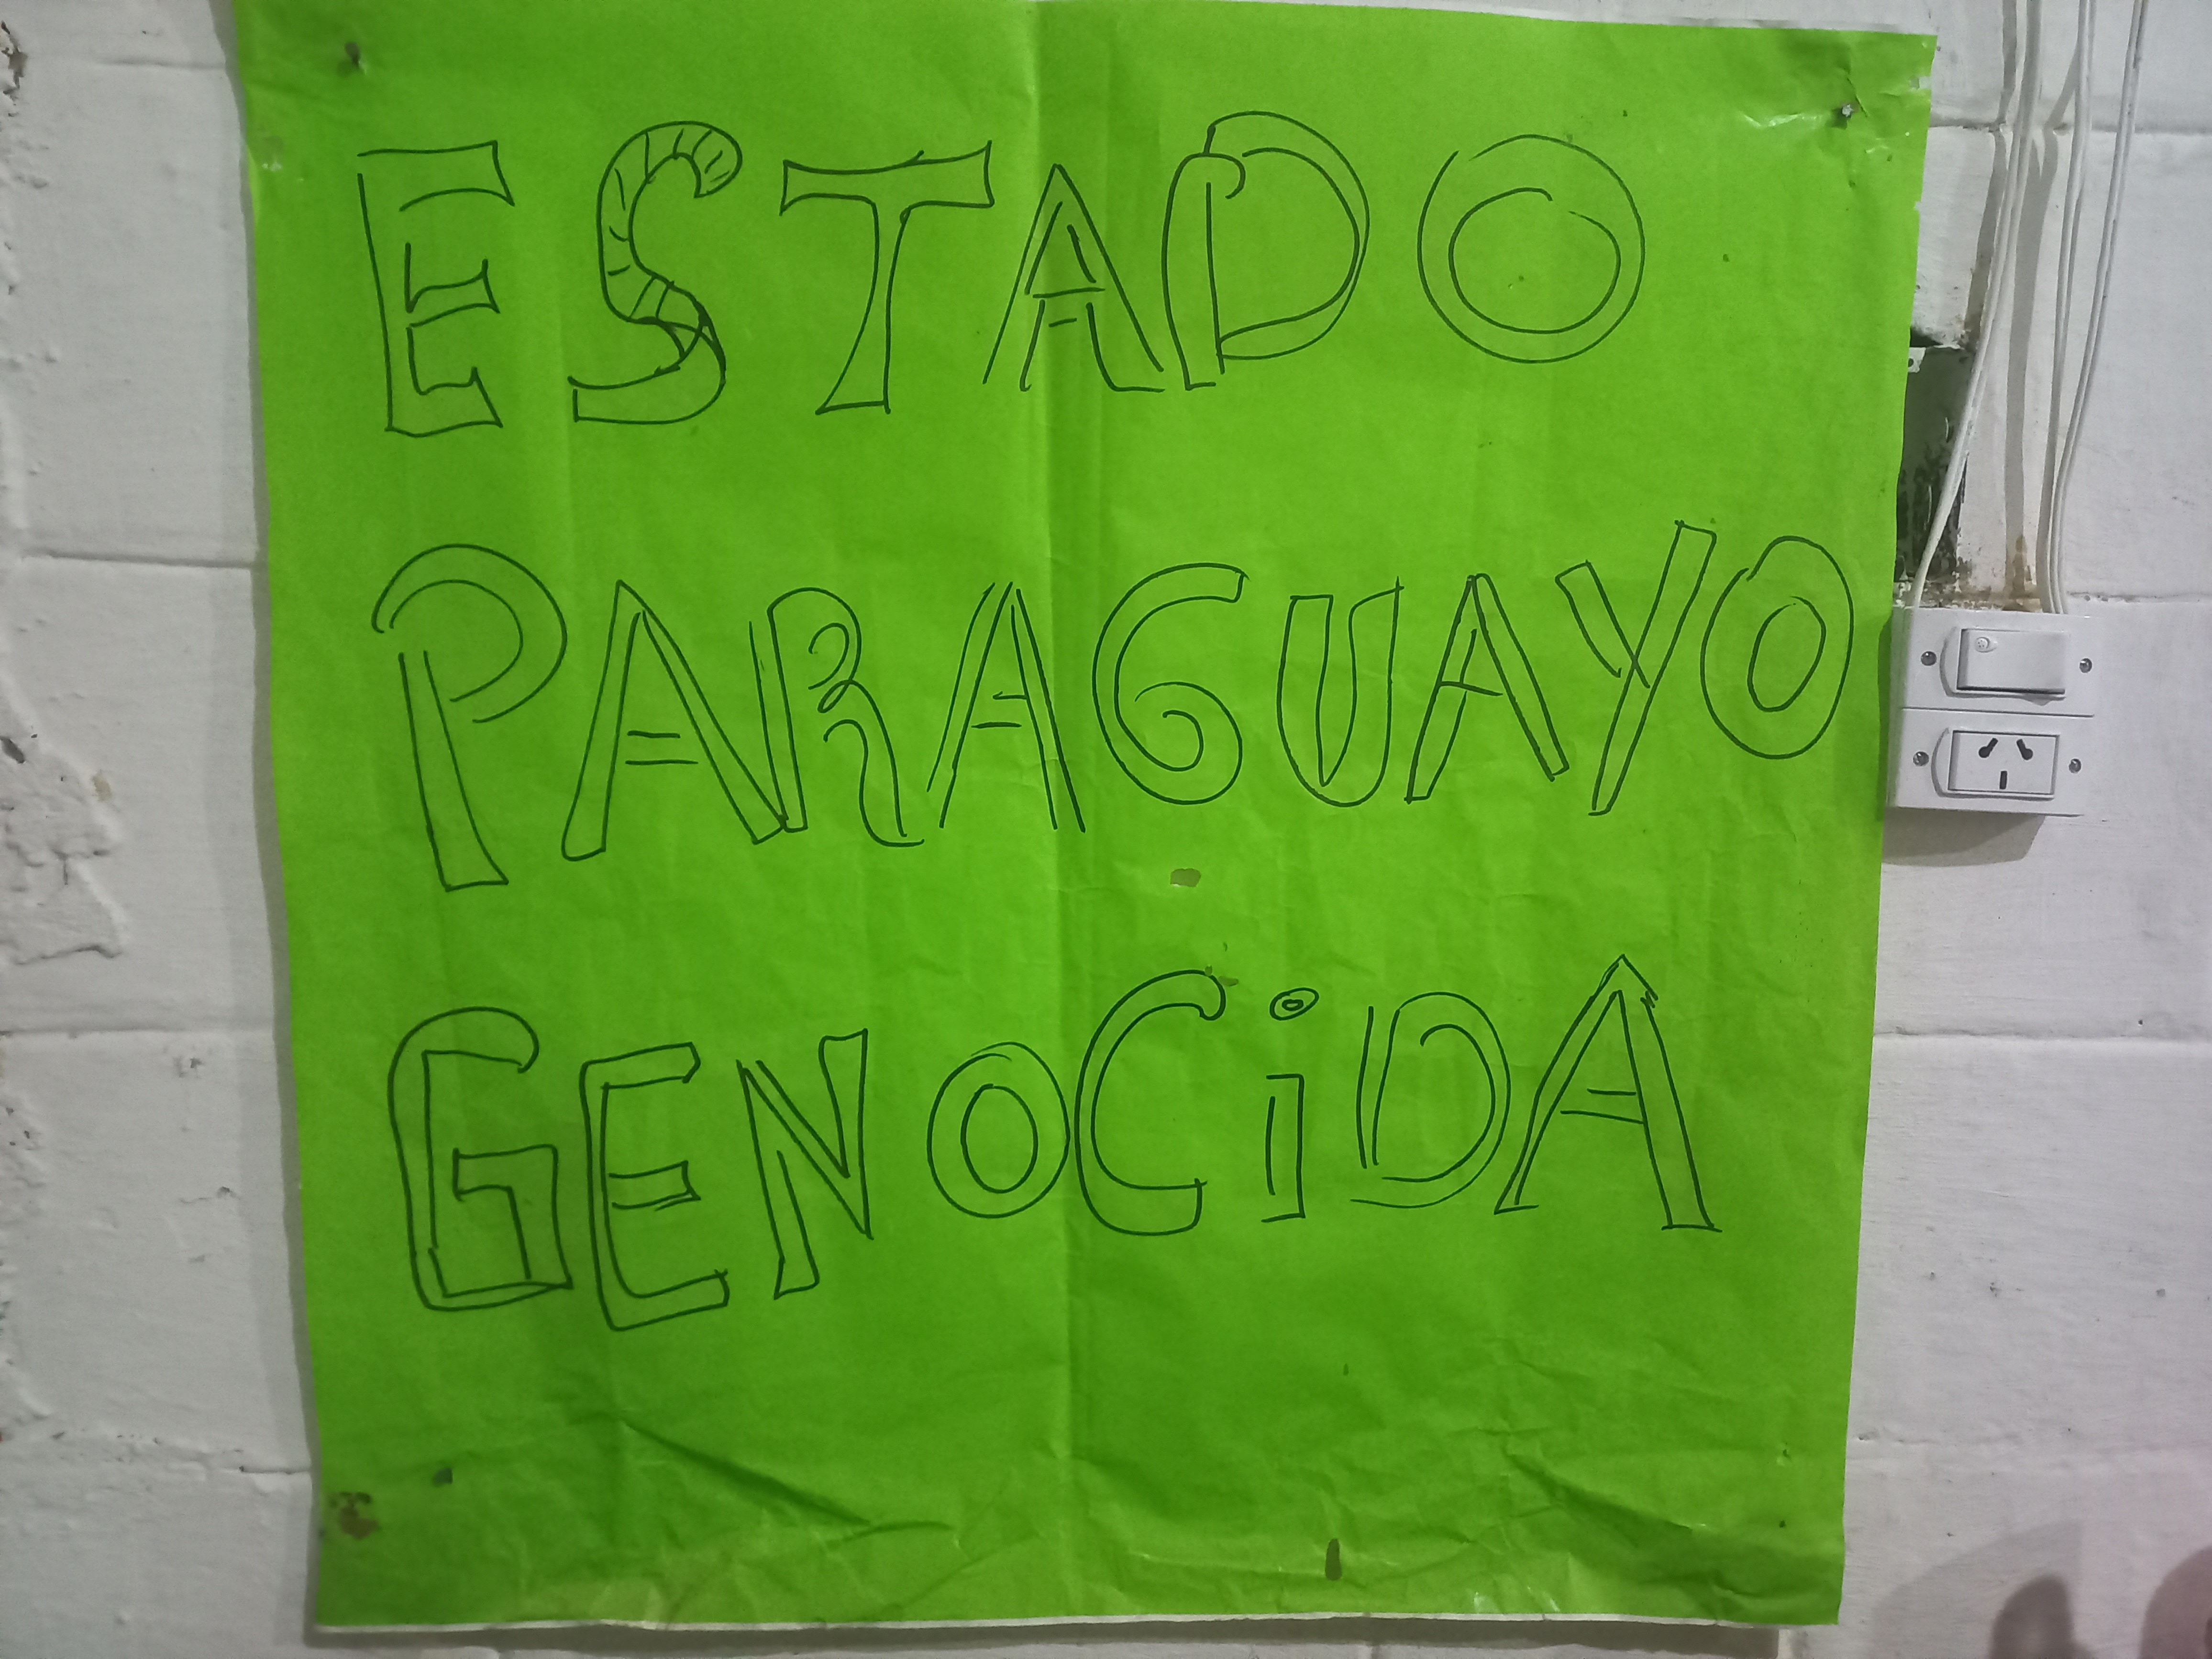 ESTADO
PARAGUAYO
GENOCiDA